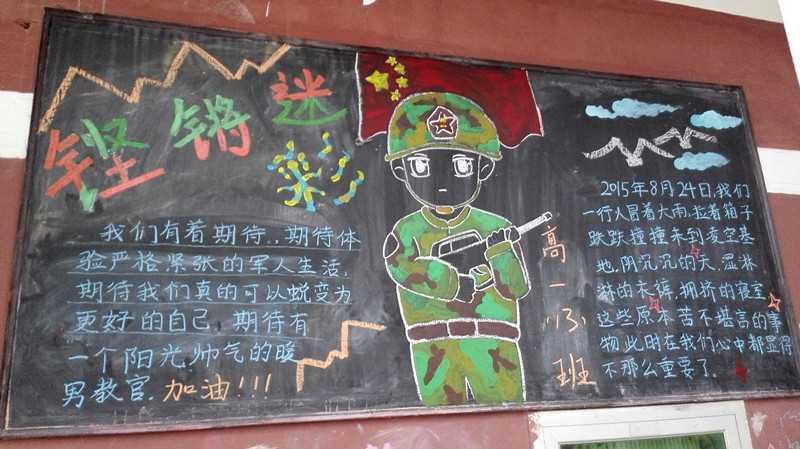 铿锵迷
我们有着期待,,期待体
验严格紧张的军人生活,
期待我们真的可以蜕变为
更好的自己,期待有
一个阳光帅气的暖
男教官.加油!!!
高一(5)班
2015年8月24日,我们
一行人冒着大雨,拉着箱子
跌跌撞撞来到凌空基
地,阴沉沉的天,湿淋
淋的衣裤,拥挤的寝室
这些原本苦不堪言的事
物此时在我们心中都显得
不那么重要了.